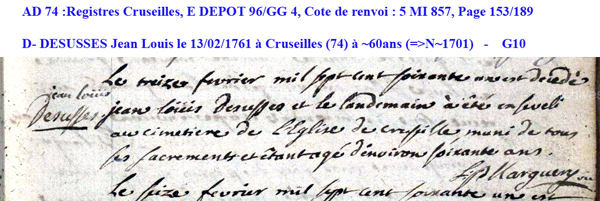 AD 74 :Registres Cruseilles, E DEPOT 96/GG 4, Cote de renvoi : 5 MI 857, Page 153/189
D- DESUSSES Jean Louis le 13/02/1761 à Cruseilles (74) à ~60ans (=>N~1701) - G10
Le treize fevrier mil sept cent soixante un est decedé
jean loüis
Desusses
jean loüis Desusses et le landemain a été enseveli
au cimetiere de L'Eglise de crusille muni de tous
ses sacrements et étant agé d'environ soixante ans.
Marguery
Le seize fevrier mil sept cent soixante un est